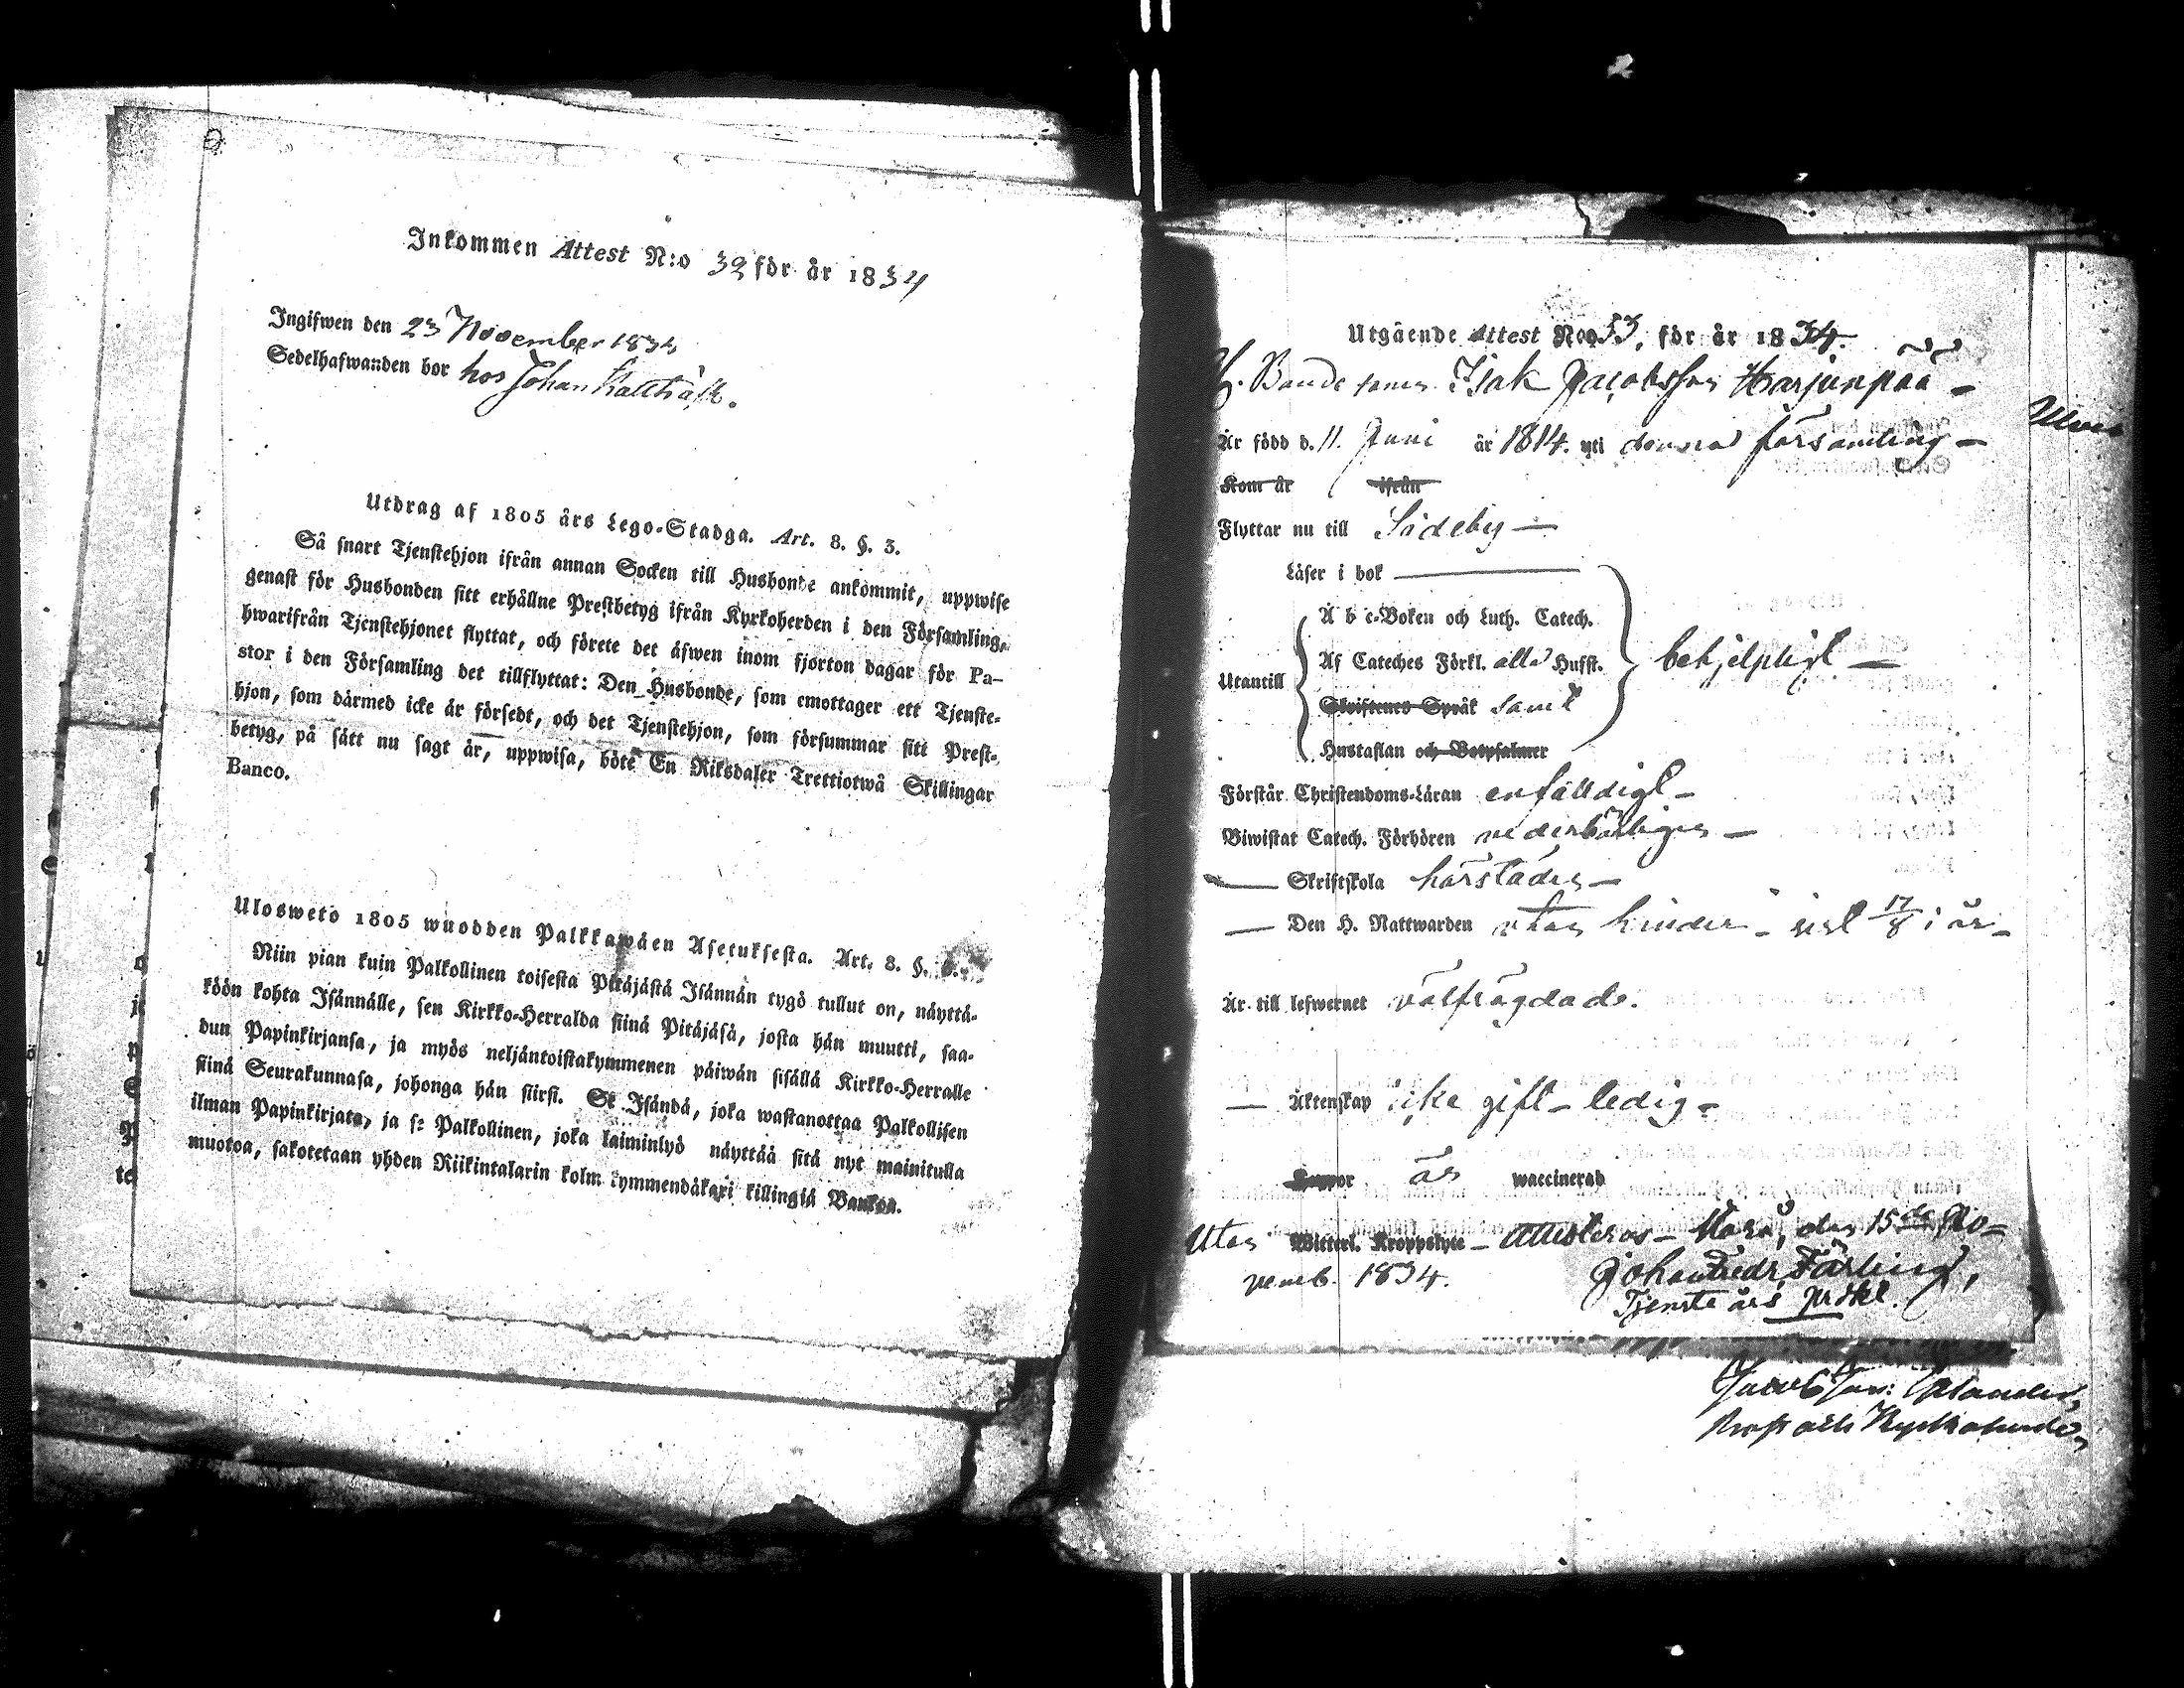 Inkommen Attest N:o 32 för år 1834
Ingifwen den 23 November 1834
Sedelhafwanden bor hos Johan
Utdrag af 1805 års Lego-Stadga. Art. 8. §. 3.
Så snart Tjenstehjon ifrån annan Socken till Husbonde ankommit, uppwise
genast för Husbonden sitt erhållne Prestbetyg ifrån Kyrkoherden i den Församling,
hwarifrån Tjenstehjonet flyttat, och förete det äfwen inom fjorton dagar för Pa-
stor i den Församling det tillflyttat: Den Husbonde, som emottager ett Tjenste-
hjon, som därmed icke är försedt, och det Tjenstehjon, som försummar sitt Prest-
betyg, på sätt nu sagt är, uppwisa, böte En Riksdaler Trettiotwå Skillingar
Banco.
Ulosweto 1805 wuodden Palkkawäen Asetuksesta. Art. 8. §.
Niin pian kuin Palkollinen toisesta Pitäjästä Isännän tygö tullut on, näyttä-
köön kohta Isännälle, sen Kirkko-Herralda siinä Pitäjäsä, josta hän muutti, saa-
dun Papinkirjansa, ja myös neljäntoistakymmenen päiwän sisällä Kirkko-Herralle
siinä Seurakunnasa, johonga hän siirsi. Se Isändä, joka wastanottaa Palkollisen
ilman Papinkirjata, ja se Palkollinen, joka laiminlyö näyttää sitä nyt mainitulla
muotoa, sakotetaan yhden Riikintalarin kolmkymmendäkaxi killingiä Bankoa.
Utgående Attest N:o 53, för år 1834.
Bonde sonen Isak Jacobsson Harjunpää -
Är född d. 11. Juni år 1814. uti denna församling -
Kom år ifrån
Flyttar nu till Sideby -
Läser i bok
A b c-Boken och Luth. Catech.
Af Cateches Förkl. alla Hufst. behjelpligt -
Utantill
Skriftenes Språk samt
Hustaflan och Botpsalmer
Förstår Christendoms-Läran enfaldigt -
Biwistat Catech. Förhören vederbörligen -
- Skriftskola härstädes -
- Den H. Nattwarden utan hinder - sist 17/8 i år -
Är till lefwernet välfrägdade.
- Äktenskap icke gift - ledig -
Koppor är waccinerad
Utan Witterl. Kroppslyte - Attesteras - den 15de No-
vemb. 1834.
Johan Fredr. Färling,
Tjenste års
Jacob
Prost och Kyrkoherde